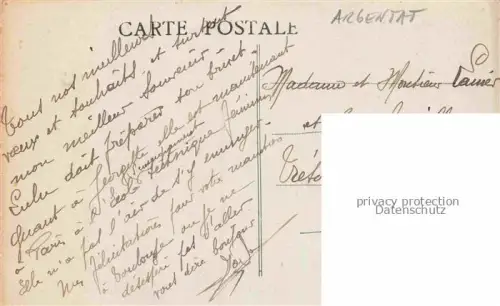 ARGENTAT
CARTE POSTALE
Tous nos meilleurs
vœux et souhaits et surtout
mon meilleur souvenir.
Lulu doit préparer son brevet.
Quant à Georgette elle est maintenant
à Paris à l'Ecole Technique féminine
Elle n'a pas l'air de s'y ennuyer.
Mes félicitations pour votre
à Toulouse où je ne
désespère pas d'aller
vous dire bonjour
Madame et Monsieur
et
Trés
privacy protection
Datenschutz